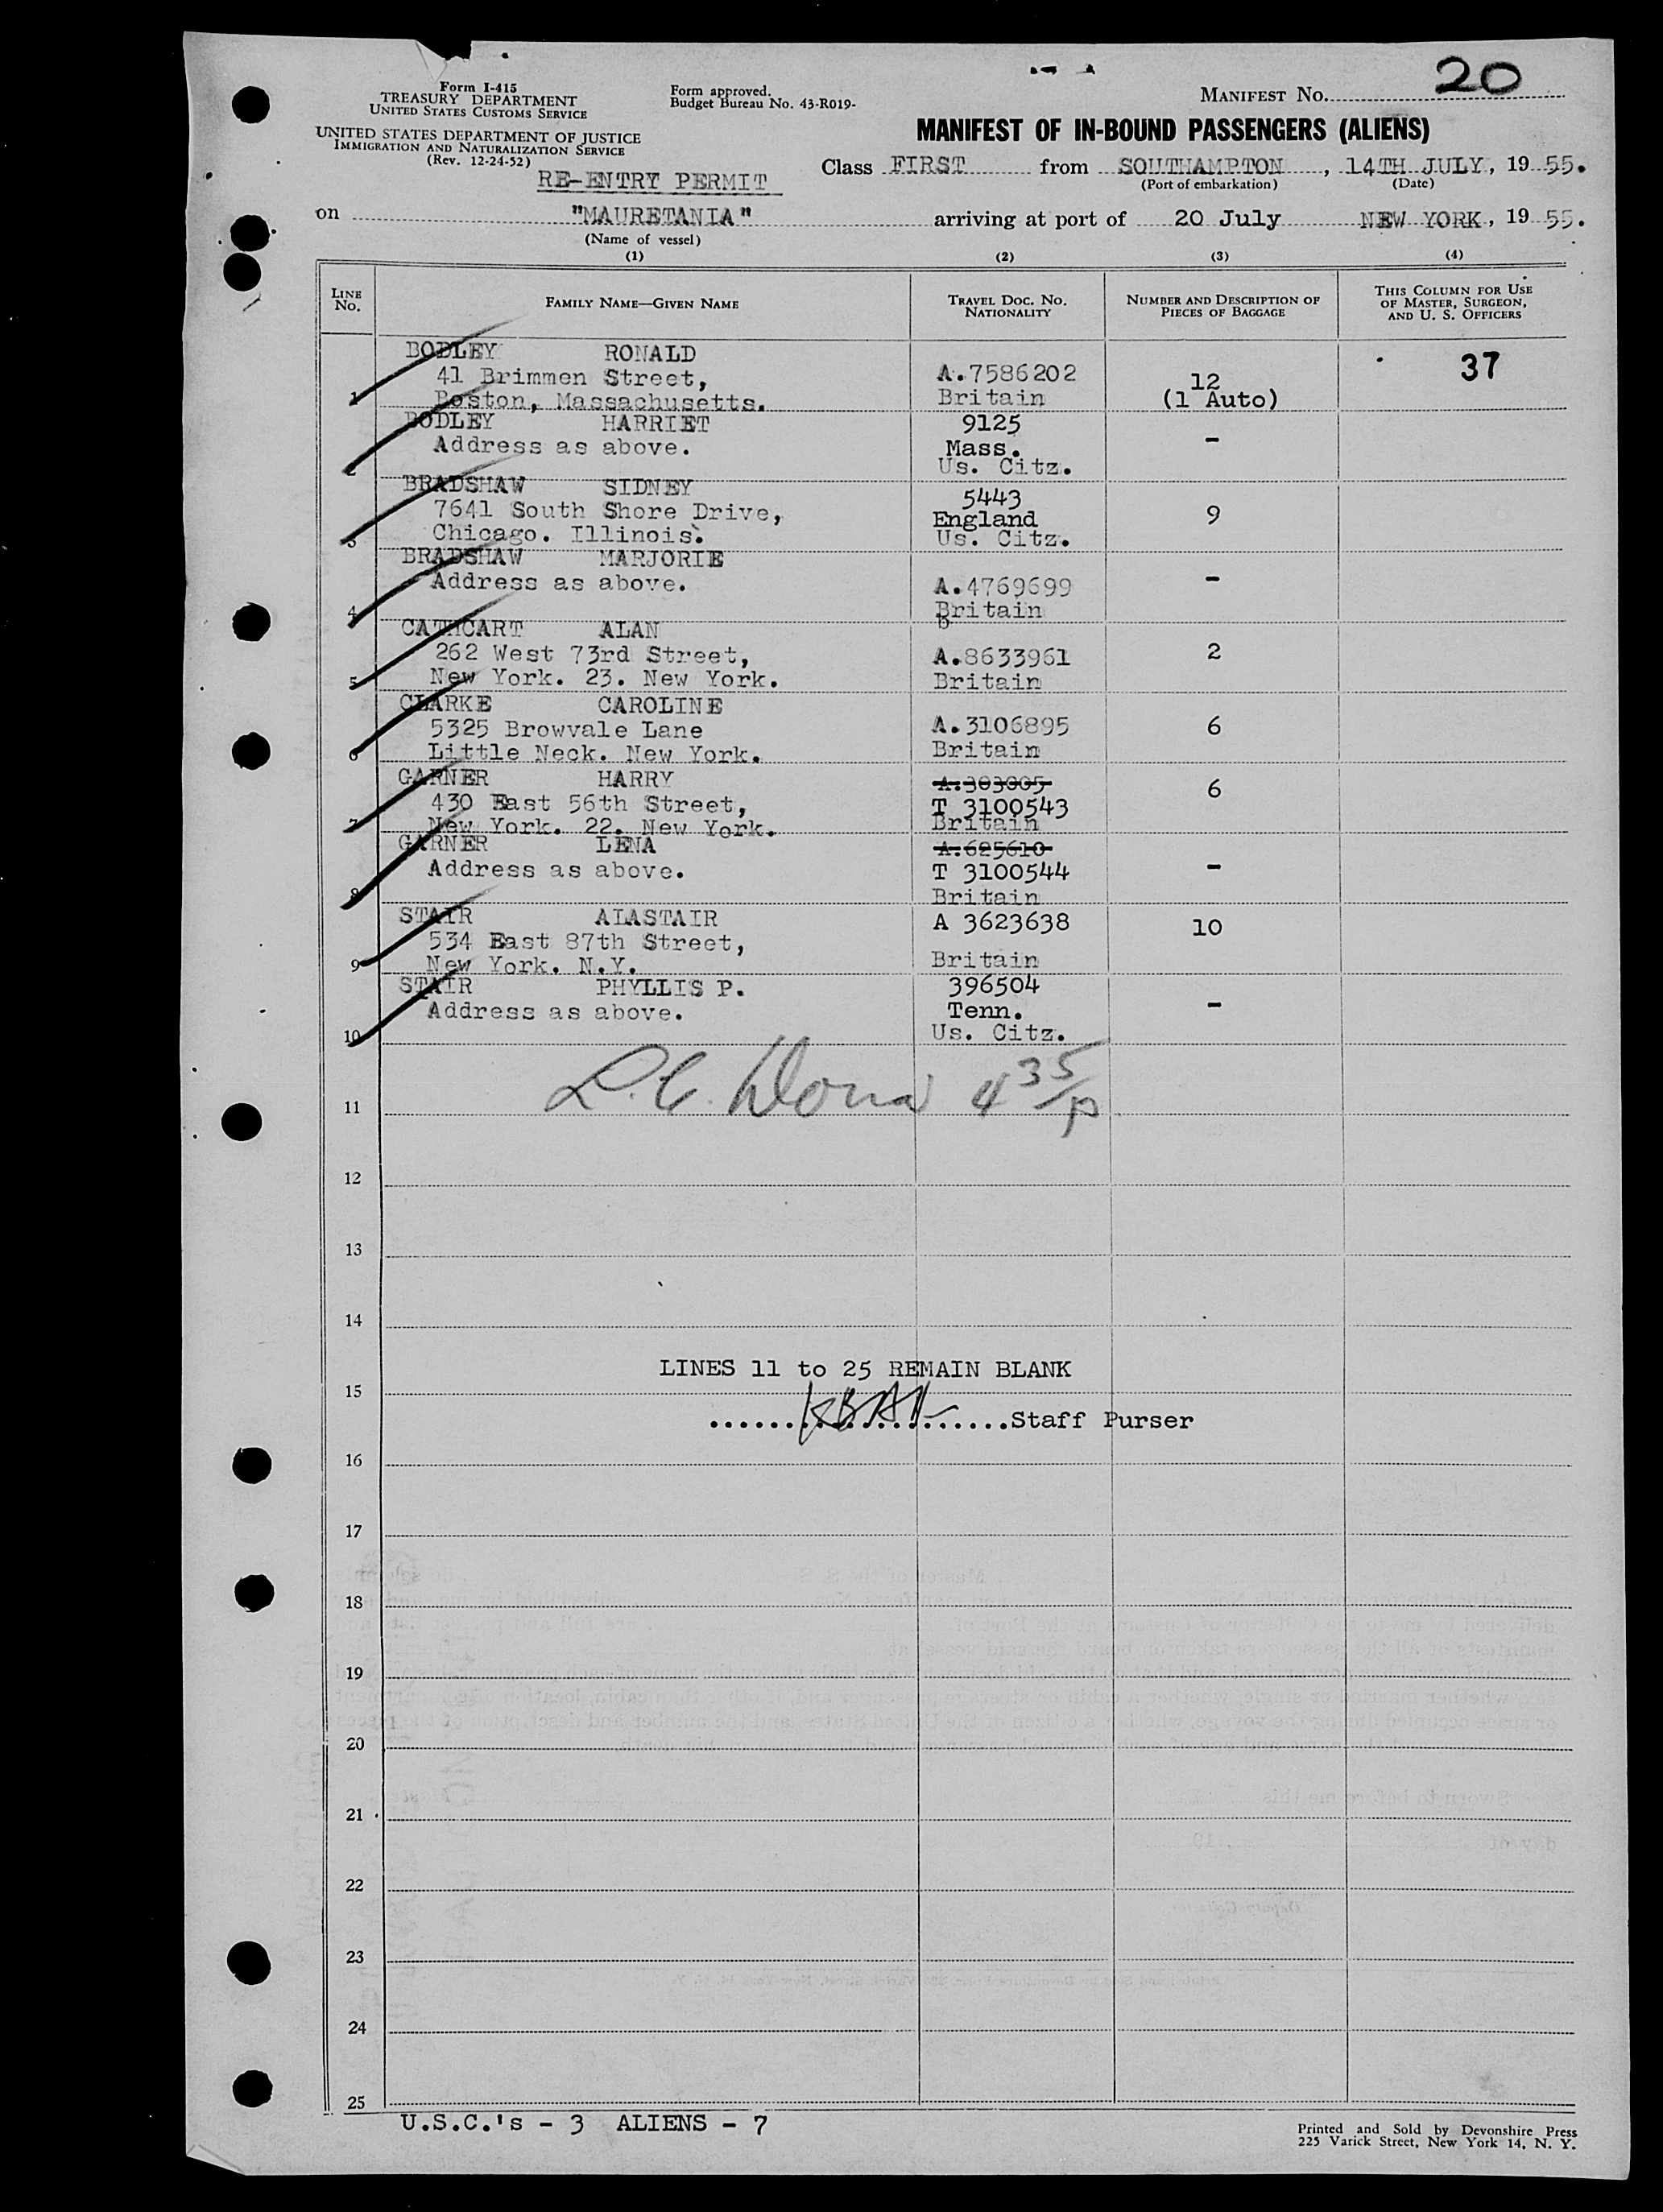 20
Form I-415
TREASURY DEPARTMENT
UNITED STATES CUSTOMS SERVICE
UNITED STATES DEPARTMENT OF JUSTICE
IMMIGRATION AND NATURALIZATION SERVICE
(Rev. 12-24-52)
Form approved.
Budget Bureau No. 43-R019-
MANIFEST NO.
MANIFEST OF IN-BOUND PASSENGERS (ALIENS)
RE-ENTRY PERMIT
Class FIRST from SOUTHAMPTON, 14TH JULY, 19 55.
(Port of embarkation) (Date)
on "MAURETANIA" arriving at port of 20 July NEW YORK, 19 55.
(Name of vessel)
(1) (2) (3) (4)
LINE No. FAMILY NAME—GIVEN NAME TRAVEL DOC. NO. NATIONALITY NUMBER AND DESCRIPTION OF PIECES OF BAGGAGE THIS COLUMN FOR USE OF MASTER, SURGEON, AND U. S. OFFICERS
BODLEY RONALD 37
41 Brimmen Street, A.7586202 12
1 Boston, Massachusetts. Britain (1 Auto)
BODLEY HARRIET 9125
Address as above. Mass. -
2 Us. Citz.
BRADSHAW SIDNEY 5443
7641 South Shore Drive, England 9
3 Chicago. Illinois. Us. Citz.
BRADSHAW MARJORIE
Address as above. A.4769699 -
4 Britain
CATHCART ALAN
262 West 73rd Street, A.8633961 2
5 New York. 23. New York. Britain
CLARKE CAROLINE
5325 Browvale Lane A.3106895 6
6 Little Neck. New York. Britain
GARNER HARRY A.303005
430 East 56th Street, T 3100543 6
7 New York. 22. New York. Britain
GARNER LENA A.625610
Address as above. T 3100544 -
8 Britain
STAIR ALASTAIR A 3623638 10
534 East 87th Street,
9 New York. N.Y. Britain
STAIR PHYLLIS P. 396504
Address as above. Tenn. -
10 Us. Citz.
4 35/p
11
12
13
14
LINES 11 to 25 REMAIN BLANK
15
Staff Purser
16
17
18
19
20
21
22
23
24
25
U.S.C.'s - 3 ALIENS - 7
Printed and Sold by Devonshire Press
225 Varick Street, New York 14, N. Y.